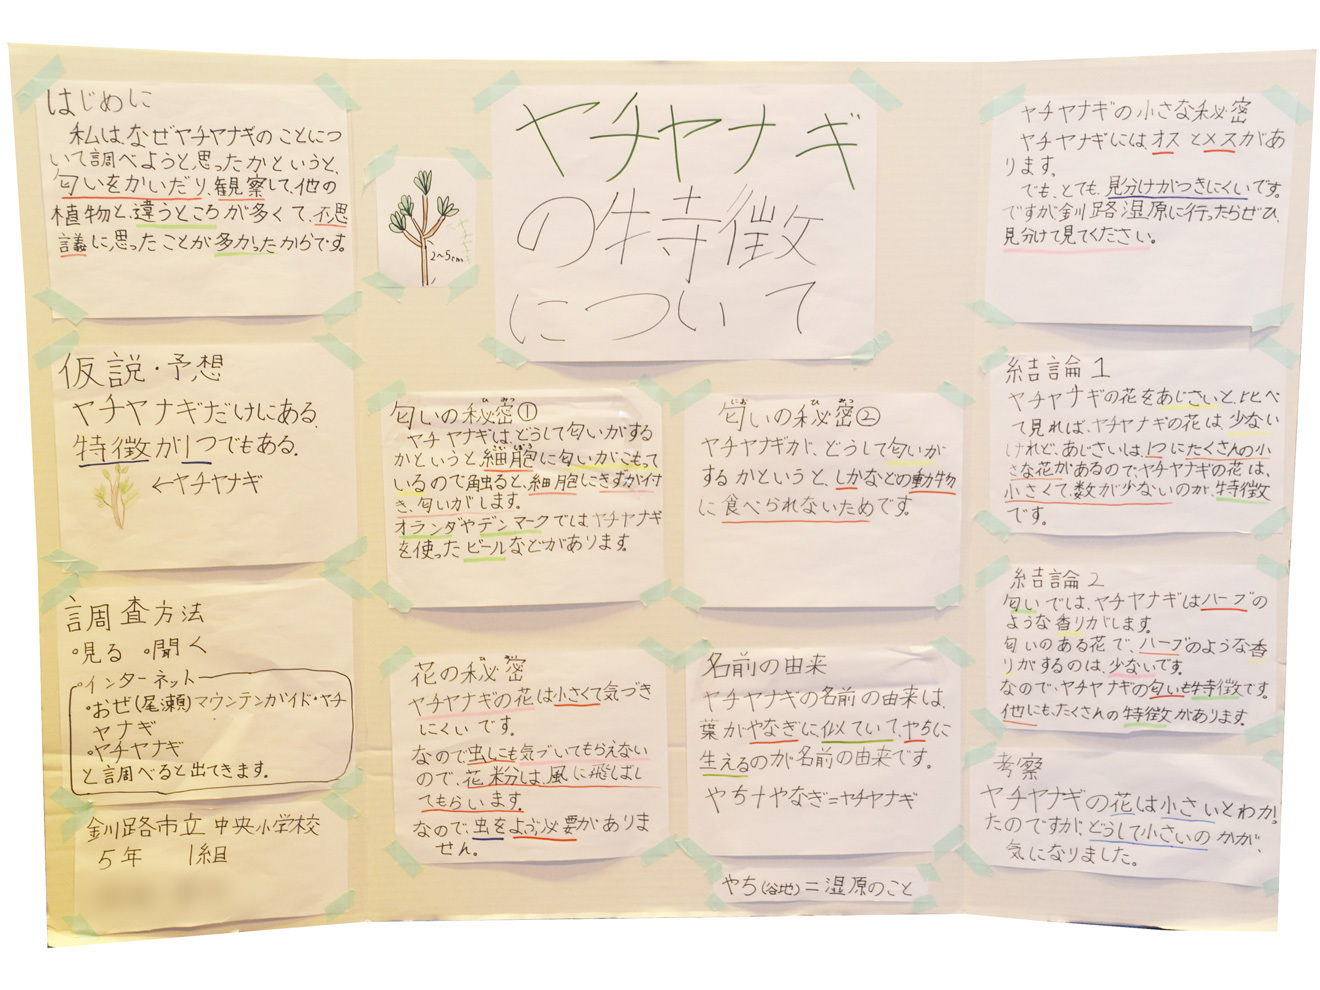 はじめに
私は、なぜヤチヤナギのことにつ
いて調べようと思ったかというと、
匂いをかいだり、観察して、他の
植物と、違うところが多くて、不思
議に思ったことが多かったからです。
仮説・予想
ヤチヤナギだけにある、
特徴が1つでもある。
←ヤチヤナギ
調査方法
・見る ・聞く
・インターネット
・おぜ(尾瀬)マウンテンガイド・ヤチ
ヤナギ
・ヤチヤナギ
と調べると出てきます。
釧路市立中央小学校
5年 1組
2~5cm
ヤチヤナギ
の特徴
について
匂いの秘密①
ひみつ
ヤチヤナギは、どうして匂いがする
かというと、細胞に匂いがこもって
さいぼう
いるので触ると、細胞にきずが付
き、匂いがします。
オランダやデンマークではヤチヤナギ
を使ったビールなどがあります。
匂いの秘密②
にお ひ みつ
ヤチヤナギが、どうして匂いが
するかというと、しかなどの動物
に食べられないためです。
花の秘密
ひみつ
ヤチヤナギの花は小さくて気づき
にくいです。
なので虫にも気づいてもらえない
ので、花粉は、風に飛ばし
てもらいます。
なので、虫をよぶ必要がありま
せん。
名前の由来
ヤチヤナギの名前の由来は、
葉がやなぎに似ていて、やちに
生えるのが名前の由来です。
やち+やなぎ=ヤチヤナギ
やち(谷地)=湿原のこと
ヤチヤナギの小さな秘密
ヤチヤナギにはオスとメスがあ
ります。
でも、とても、見分けがつきにくいです。
ですが釧路湿原に行ったらぜひ、
見分けて見てください。
結論1
ヤチヤナギの花をあじさいと、比べ
て見れば、ヤチヤナギの花は、少ない
けれど、あじさいは、1つにたくさんの小
さな花があるので、ヤチヤナギの花は、
小さくて、数が少ないのが、特徴
です。
結論2
匂いでは、ヤチヤナギはハーブの
ような香りがします。
匂いのある花で、ハーブのような香
りがするのは、少ないです。
なので、ヤチヤナギの匂いも特徴です。
他にも、たくさんの特徴があります。
考察
ヤチヤナギの花は小さいとわかっ
たのですが、どうして小さいのかが、
気になりました。